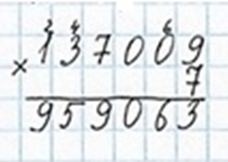 2 4 6
137009
×
7
959063